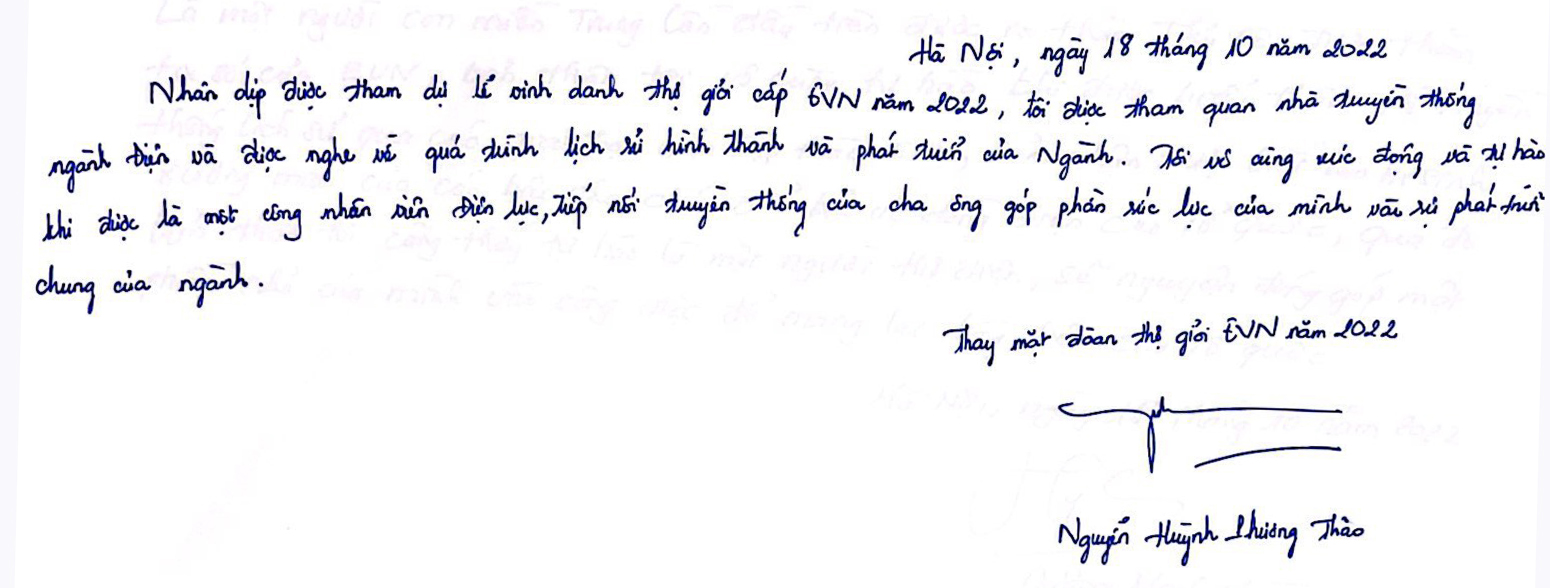 Hà Nội, ngày 18 tháng 10 năm 2022
Nhân dịp được tham dự lễ vinh danh thợ giỏi cấp EVN năm 2022, tôi được tham quan nhà truyền thống
ngành Điện và được nghe về quá trình lịch sử hình thành và phát triển của Ngành. Tôi vô cùng xúc động và tự hào
khi được là một công nhân viên Điện lực, tiếp nối truyền thống của cha ông góp phần sức lực của mình vào sự phát triển
chung của ngành.
Thay mặt đoàn thợ giỏi EVN năm 2022
Nguyễn Huỳnh Phương Thảo